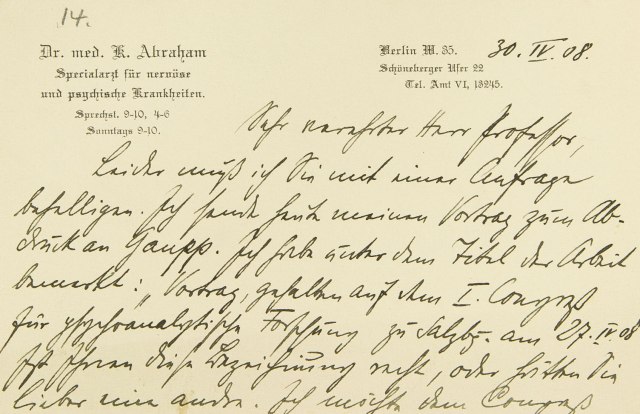 14.
Dr. med. K. Abraham
Specialarzt für nervöse
und psychische Krankheiten.
Sprechst. 9-10, 4-6
Sonntags 9-10.
Berlin W. 35. 30. IV. 08.
Schöneberger Ufer 22
Tel. Amt VI, 13245.
Sehr verehrter Herr Professor,
Leider muß ich Sie mit einer Anfrage
behelligen. Ich sende heute meinen Vortrag zum Ab-
druck an Gaupp. Ich habe unter dem Titel der Arbeit
bemerkt: „Vortrag, gehalten auf dem I. Congreß
für psychoanalytische Forschung zu Salzbg. am 27. IV 08
Ist Ihnen diese Bezeichnung recht, oder hätten Sie
lieber eine andre. Ich möchte dem Congreß